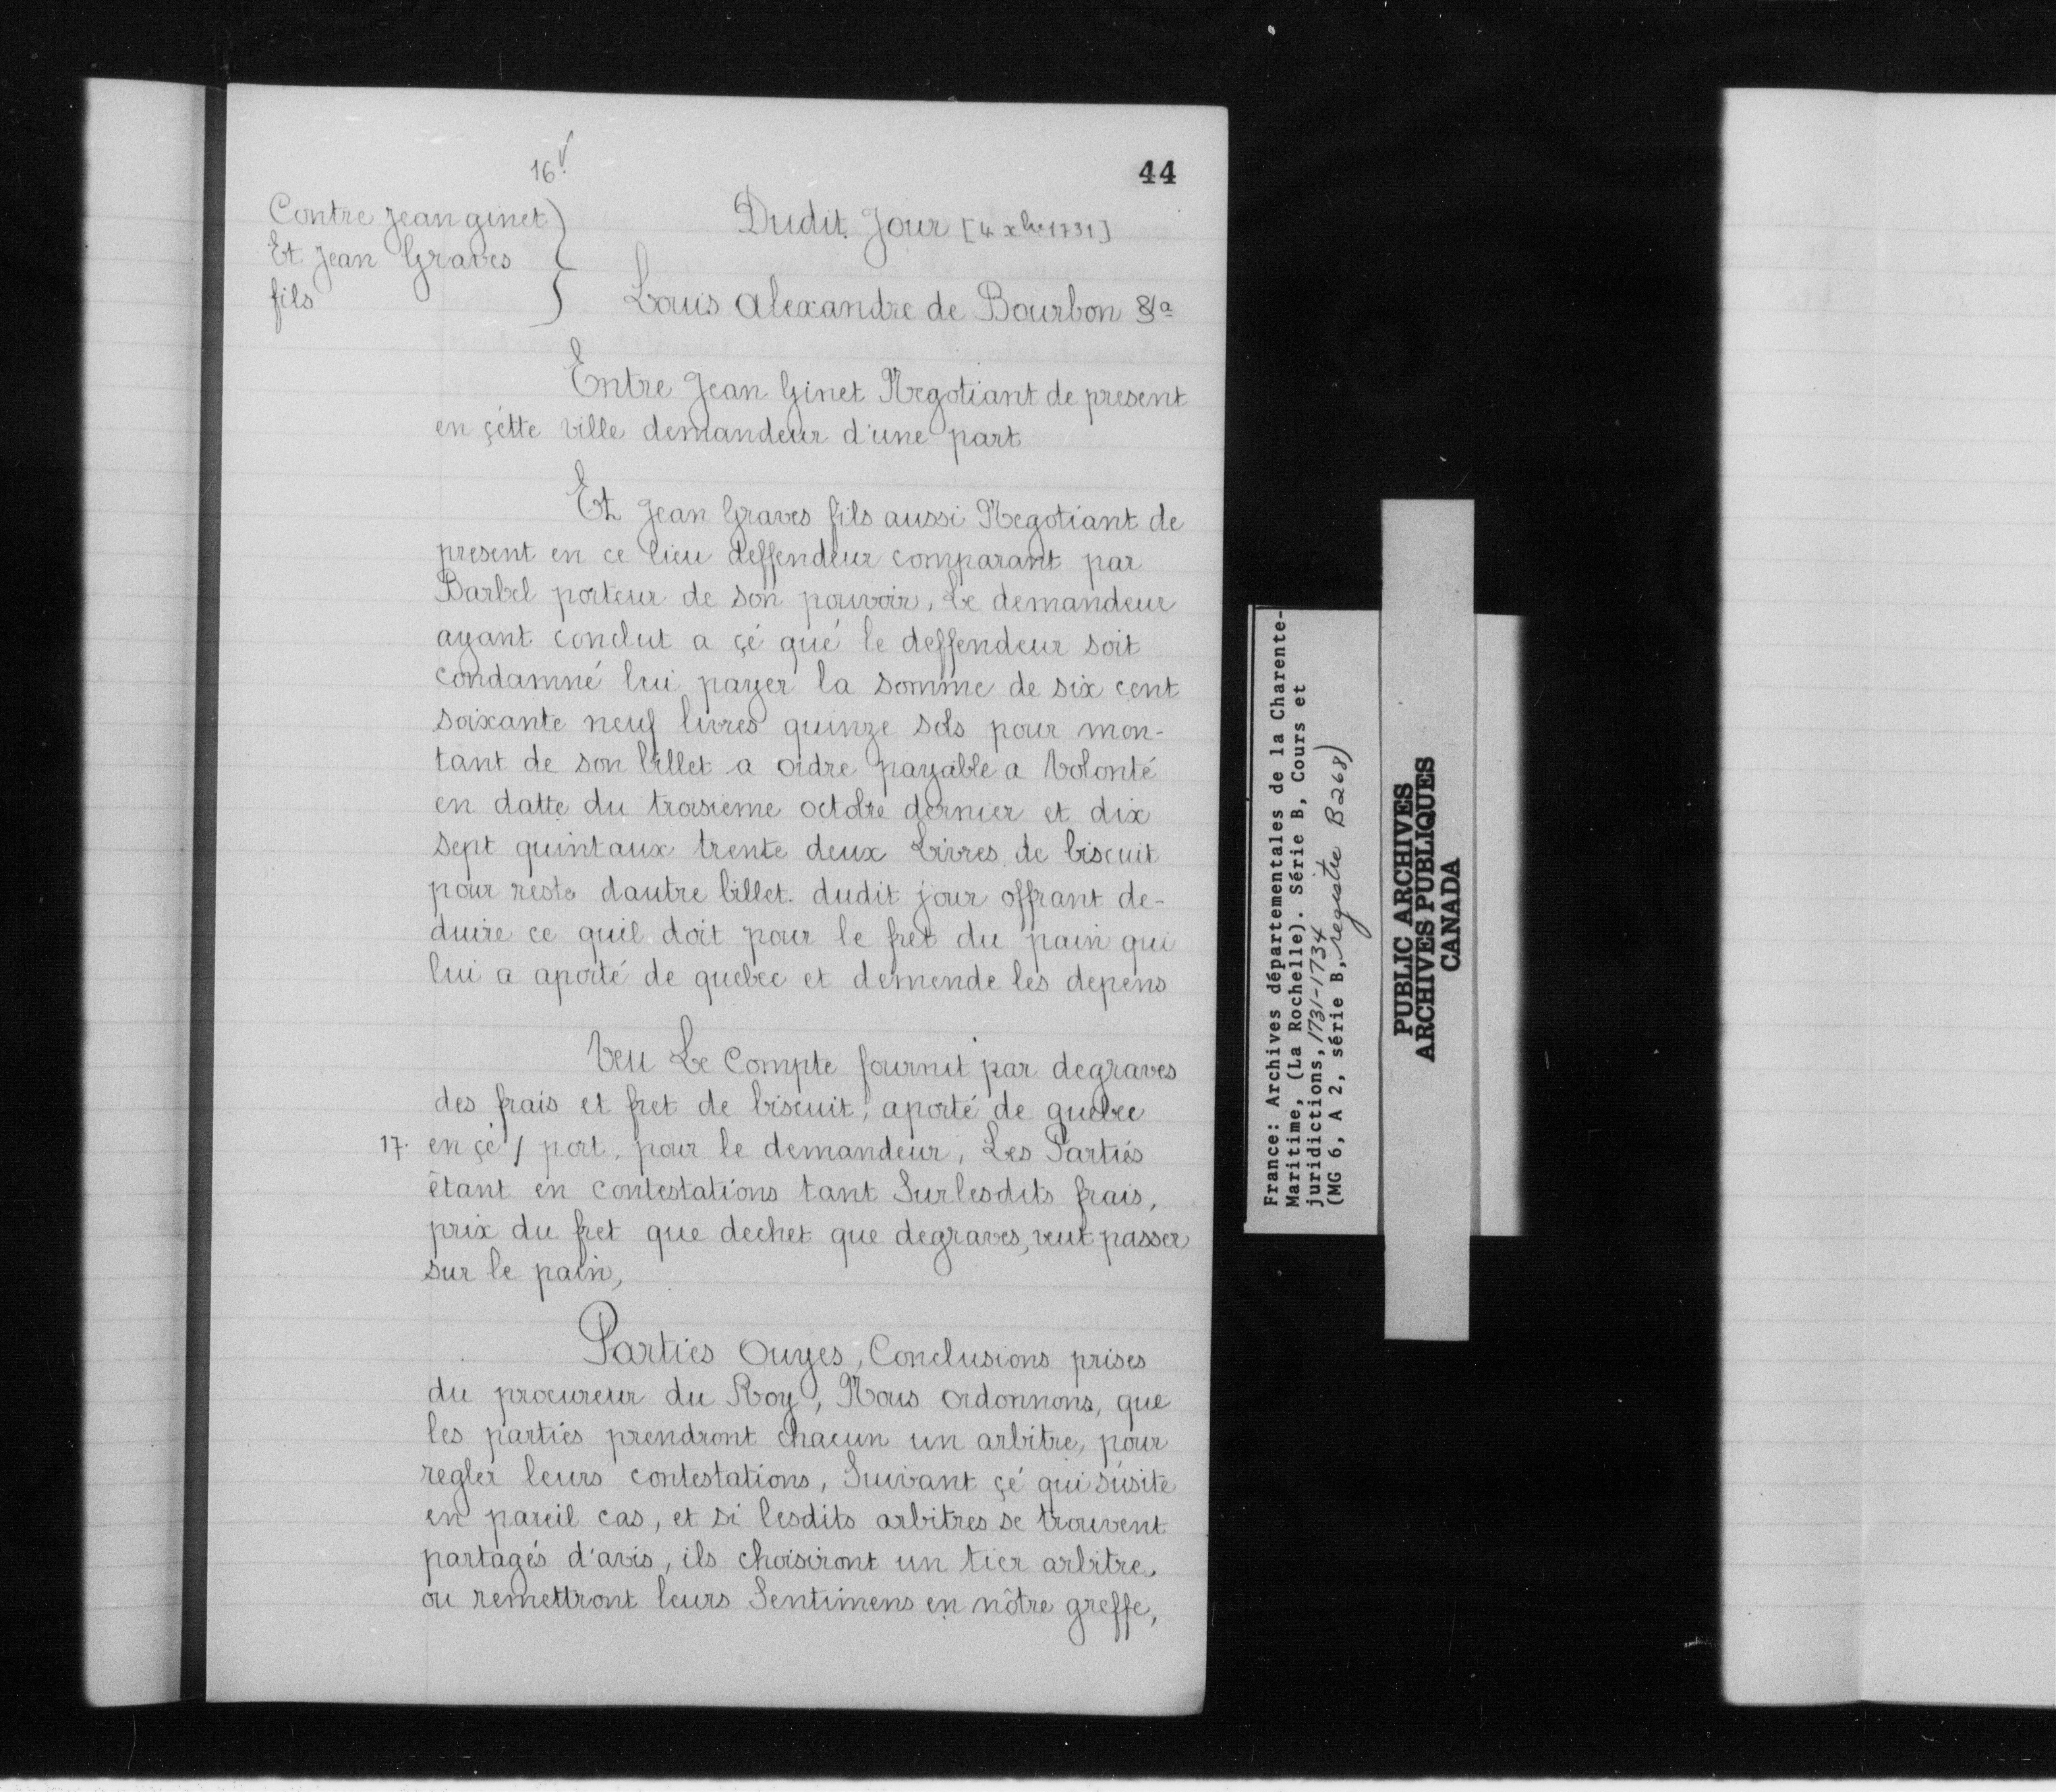 16v
44
Contre Jean ginet
Et Jean Graves
fils
Dudit Jour [4 xbre 1731]
Louis Alexandre de Bourbon &a
Entre Jean Ginet Negotiant de present
en çétte ville demandeur d'une part
Et Jean Graves fils aussi Negotiant de
present en ce lieu deffendeur comparant par
Barbel porteur de son pouvoir, Le demandeur
ayant conclut a çé qué le deffendeur soit
condamné lui payer la somme de six cent
soixante neuf livres quinze sols pour mon-
tant de son billet a ordre payable a Volonté
en datte du troisieme octobre dernier et dix
sept quintaux trente deux Livres de biscuit
pour reste dautre billet dudit jour offrant de-
duire ce quil doit pour le fret du pain qui
lui a aporté de quebec et demende les depens
Veu Le Compte fournit par degraves
des frais et fret de biscuit, aporté de quebec
17. en çé / port, pour le demandeur, Les Partiés
êtant en contestations tant Surlesdits frais,
prix du fret que dechet que degraves, veut passer
sur le pain,
Parties Ouyes, Conclusions prises
du procureur du Roy, Nous ordonnons, que
les partiés prendront chacun un arbitre, pour
regler leurs contestations, Suivant çé qui súsite
en pareil cas, et si lesdits arbitres se trouvent
partagés d'avis, ils choisiront un tier arbitre,
ou remettront leurs Sentimens en nôtre greffe,
France: Archives départementales de la Charente-
Maritime, (La Rochelle). Série B, Cours et
juridictions, 1731-1734
(MG 6, A 2, série B, registre B268)
PUBLIC ARCHIVES
ARCHIVES PUBLIQUES
CANADA